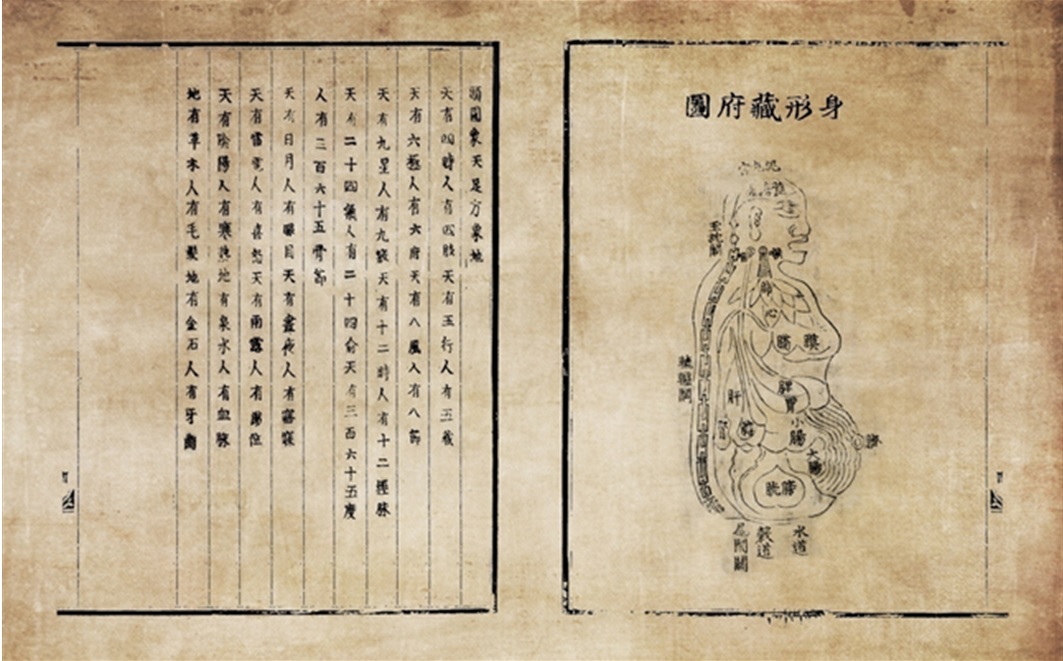 身形藏府圖
泥丸宮
玉枕關
肺
心
膈膜
脾
胃
肝
小腸
大腸
臍
膀胱
轆轤關
水道
穀道
尾閭關
頭圓象天足方象地
天有四時人有四肢天有五行人有五藏
天有六極人有六府天有八風人有八節
天有九星人有九竅天有十二時人有十二經脉
天有二十四氣人有二十四俞天有三百六十五度
人有三百六十五骨節
天有日月人有眼目天有晝夜人有寤寐
天有雷電人有喜怒天有雨露人有涕泣
天有陰陽人有寒熱地有泉水人有血脉
地有草木人有毛髮地有金石人有牙齒